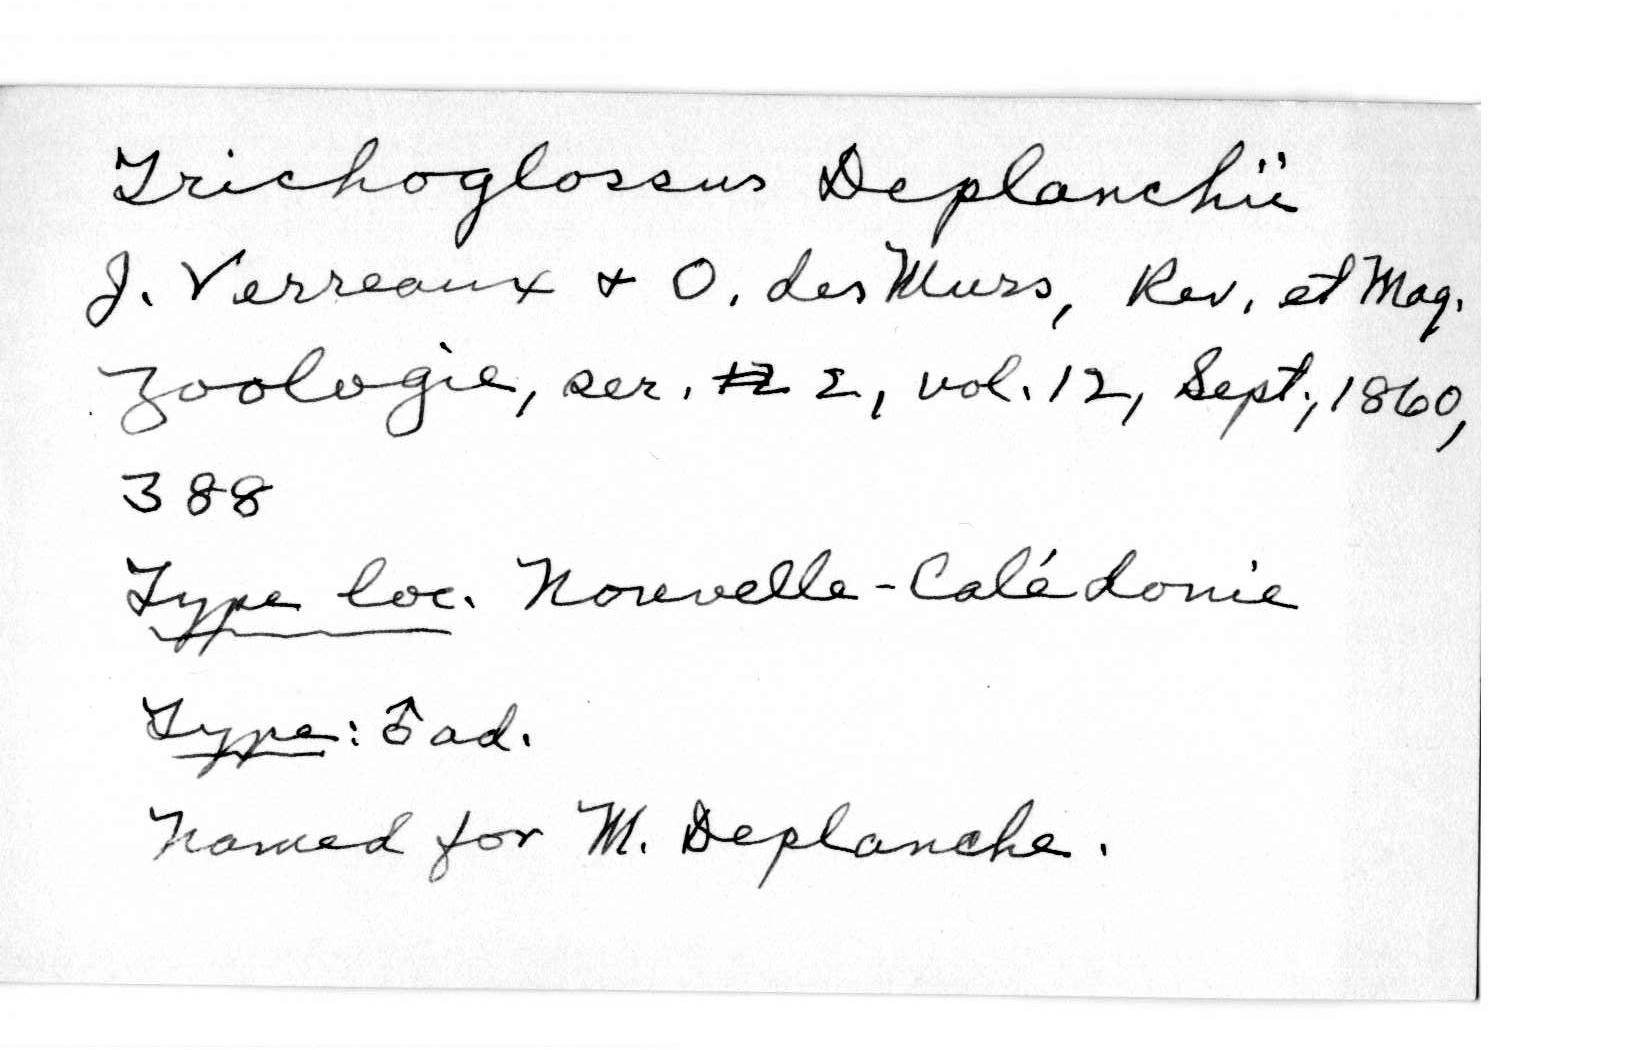 Trichoglossus Deplanchii
J. Verreaux & O. des Murs, Rev. et Mag.
Zoologie, ser. 2, vol. 12, Sept., 1860,
388
Type loc. Nouvelle-Calédonie
Type: ♂ ad.
Named for M. Deplanche.